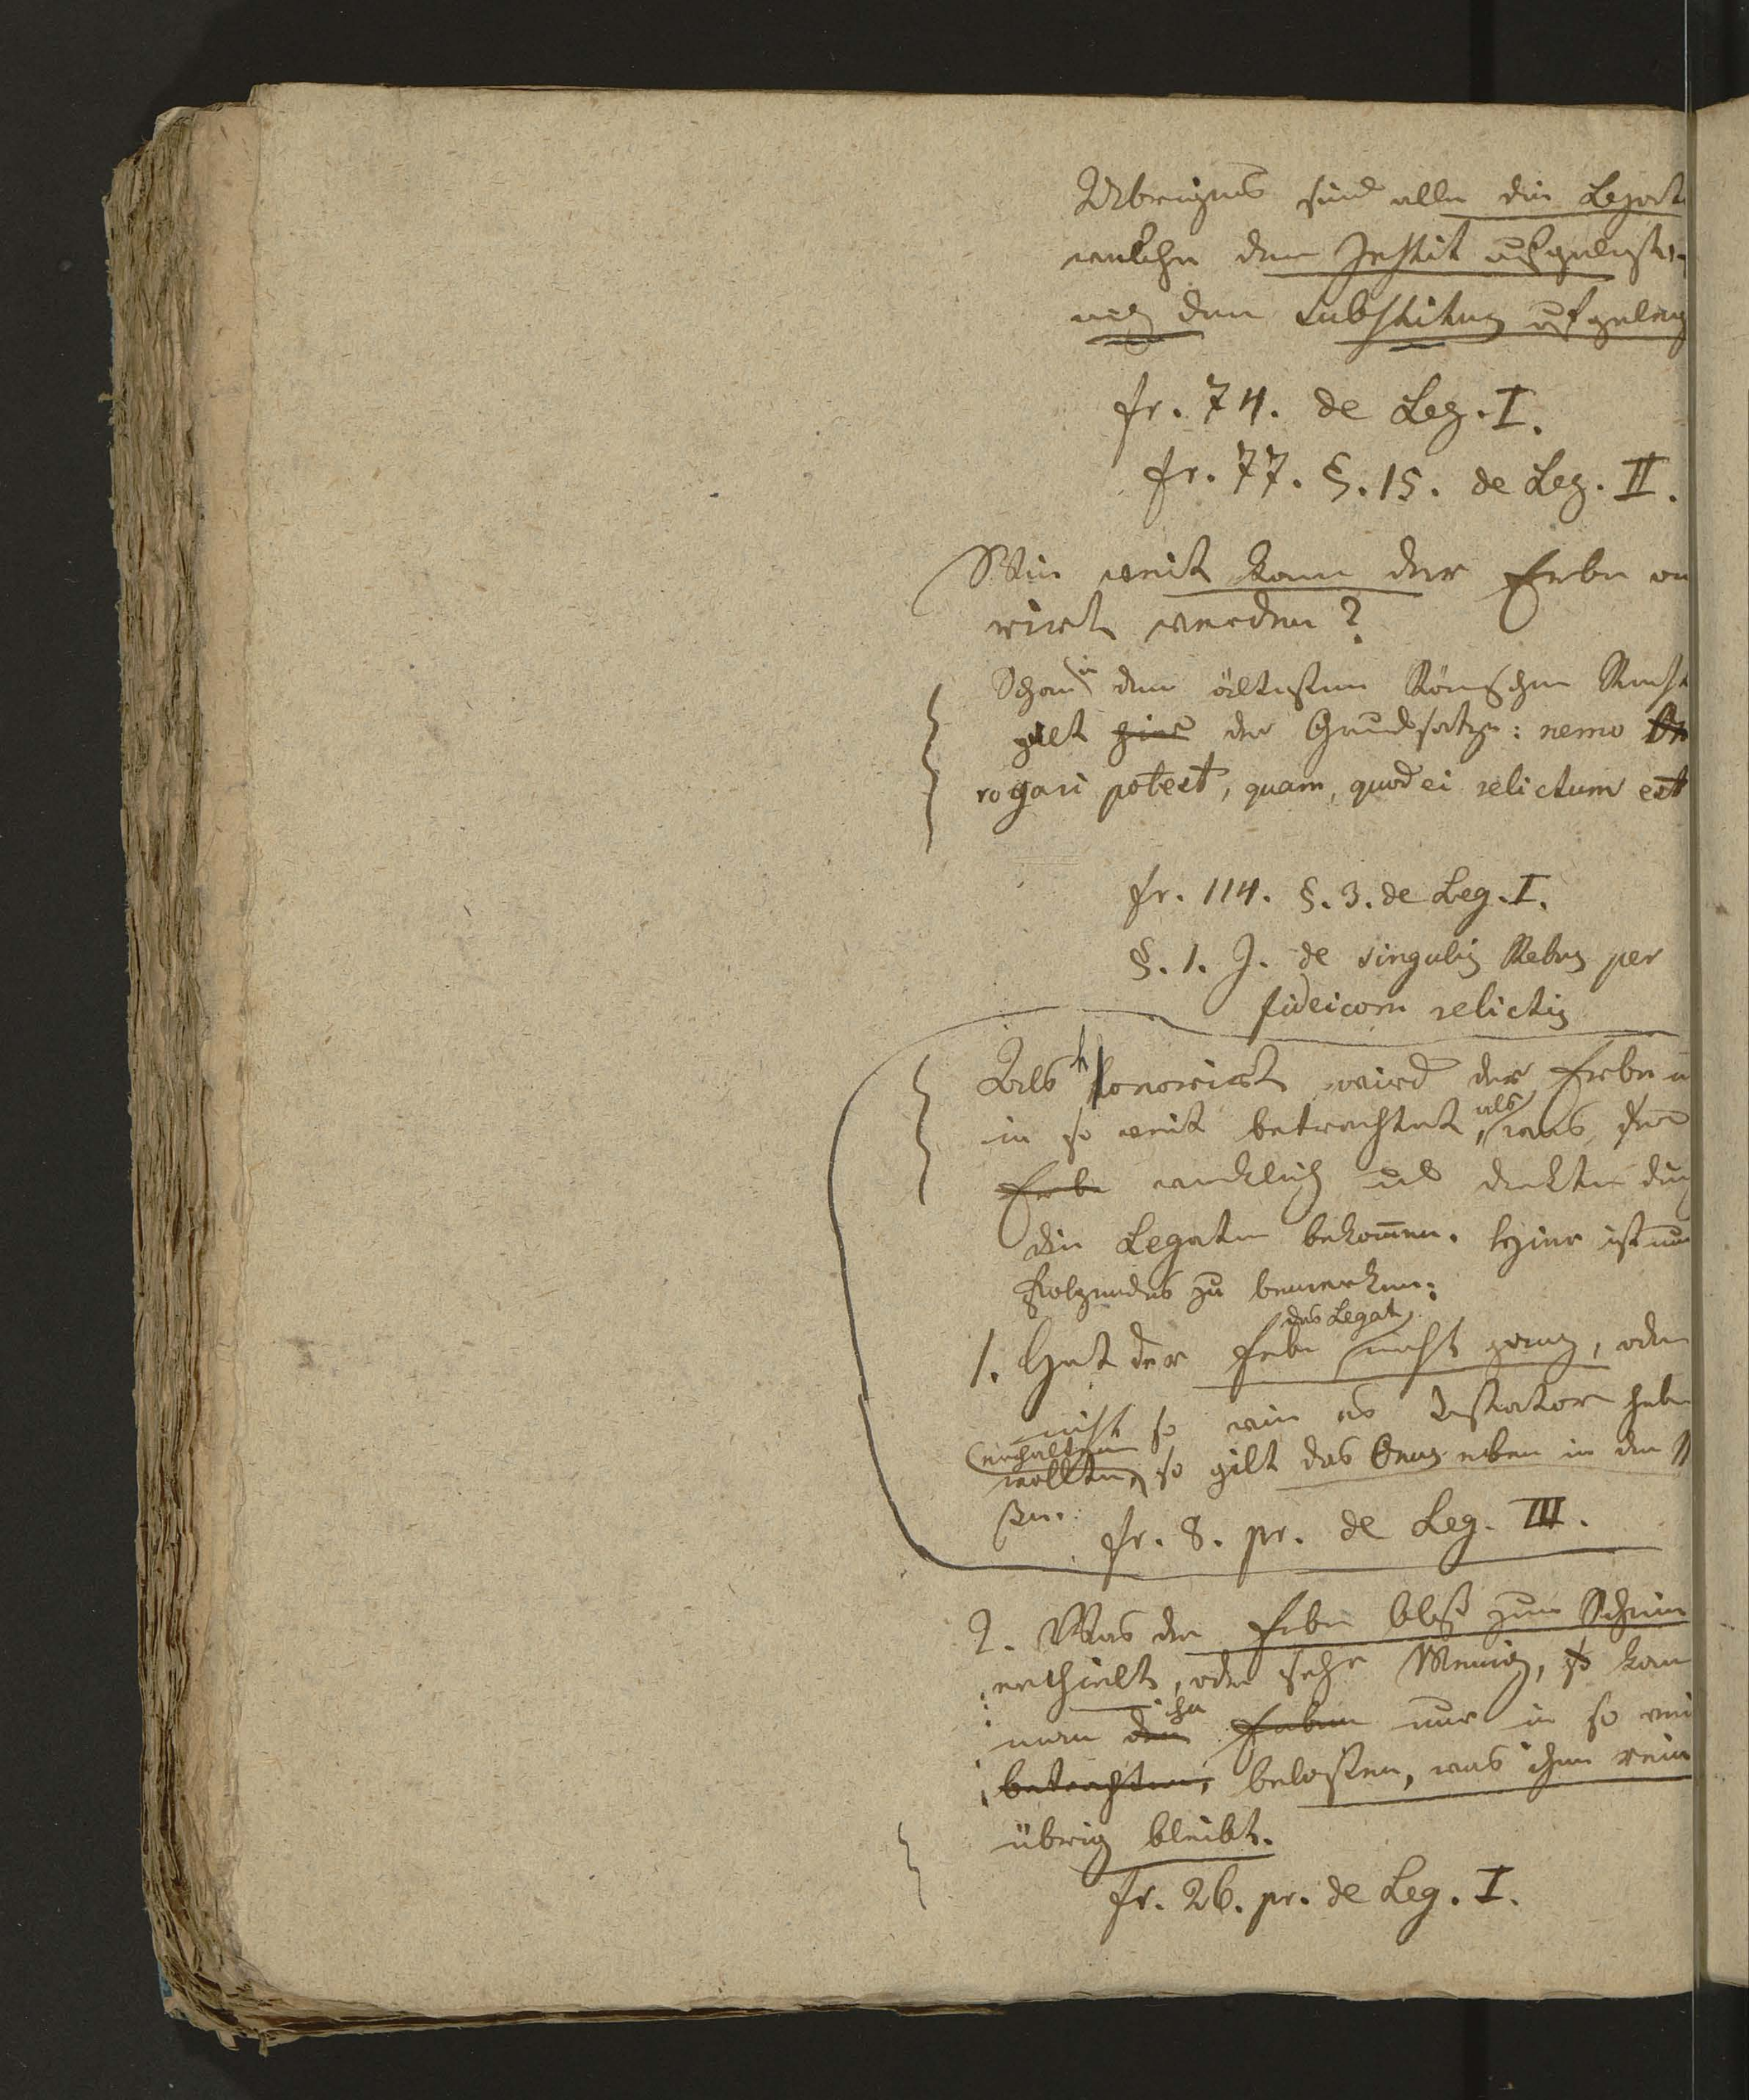 Übrigens sind alle die Legat
welche dem Instit aufgelegt
auch dem Substituz aufgeleg
fr. 74. de Leg. I.
fr. 77. §. 15. de Leg. II.
Wie weit kann der Erbe on
rirt werden?
Schon in dem ältesten Römschen Recht
gilt hier der Grundsatz: nemo
rogari potest, quam, quod ei relictum est
fr. 114. §. 3. de Leg. I.
§. 1. J. de singulis Rebus per
fideicom relictis
Als honorirt wird der Erbe
in so weit betrachtet, als was der
Erbe wirklich und
die Legaten bekom̅en. Hier ist nun
Folgendes zu bemerken:
1. Hat der Erbe das Legat nicht ganz, oder
nicht so wie es Testator haben
wollte, erhalten so gilt das Onus eben in der
ßen.
fr. 8. pr. de Leg. III.
2. Was der Erbe bloß zum Schein
erhielt, oder sehr Wenig, so kan
man den ihn Erben nur in so wei
betrachten, belasten, was ihm rein
übrig bleibt.
fr. 26. pr. de Leg. I.